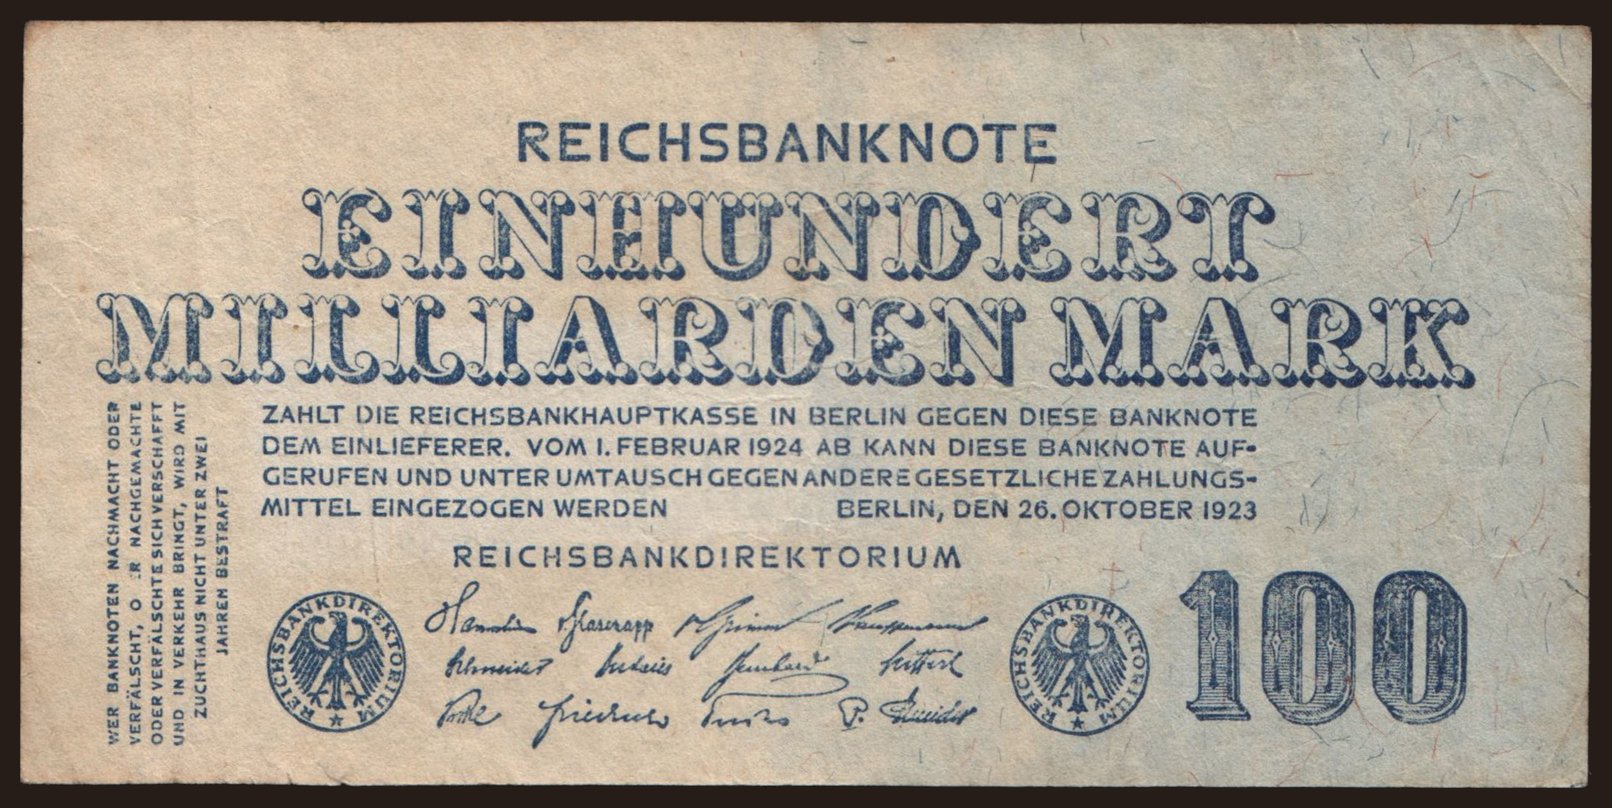 REICHSBANKNOTE
EINHUNDERT
MILLIARDEN MARK
ZAHLT DIE REICHSBANKHAUPTKASSE IN BERLIN GEGEN DIESE BANKNOTE
DEM EINLIEFERER. VOM 1. FEBRUAR 1924 AB KANN DIESE BANKNOTE AUF-
GERUFEN UND UNTER UMTAUSCH GEGEN ANDERE GESETZLICHE ZAHLUNGS-
MITTEL EINGEZOGEN WERDEN BERLIN, DEN 26. OKTOBER 1923
REICHSBANKDIREKTORIUM
WER BANKNOTEN NACHMACHT ODER
VERFÄLSCHT, O R NACHGEMACHTE
ODER VERFÄLSCHTE SICH VERSCHAFFT
UND IN VERKEHR BRINGT, WIRD MIT
ZUCHTHAUS NICHT UNTER ZWEI
JAHREN BESTRAFT
REICHSBANKDIREKTORIUM
v. Glasenapp v. Grimm Kauffmann
Schneider Budczies Bernhard Seiffert
Vocke Friedrich Fuchs P. Schneider
REICHSBANKDIREKTORIUM
100